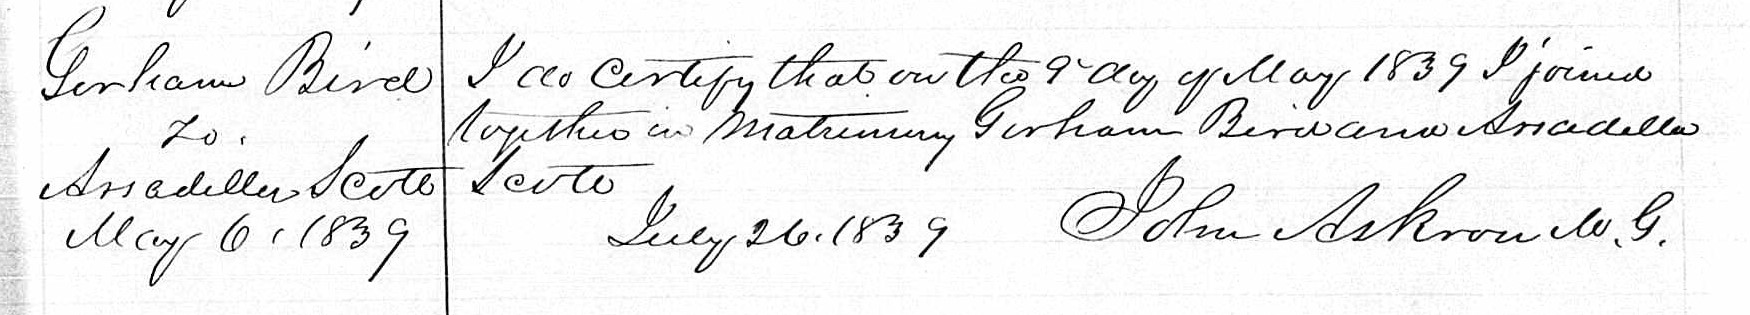 Gorham Bird
to.
Assadiller Scott
May 6, 1839
I do certify that on the 9 day of May 1839 I joined
together in Matrimony Gorham Bird and Assadella
Scott
July 26. 1839
John Askron M.G.